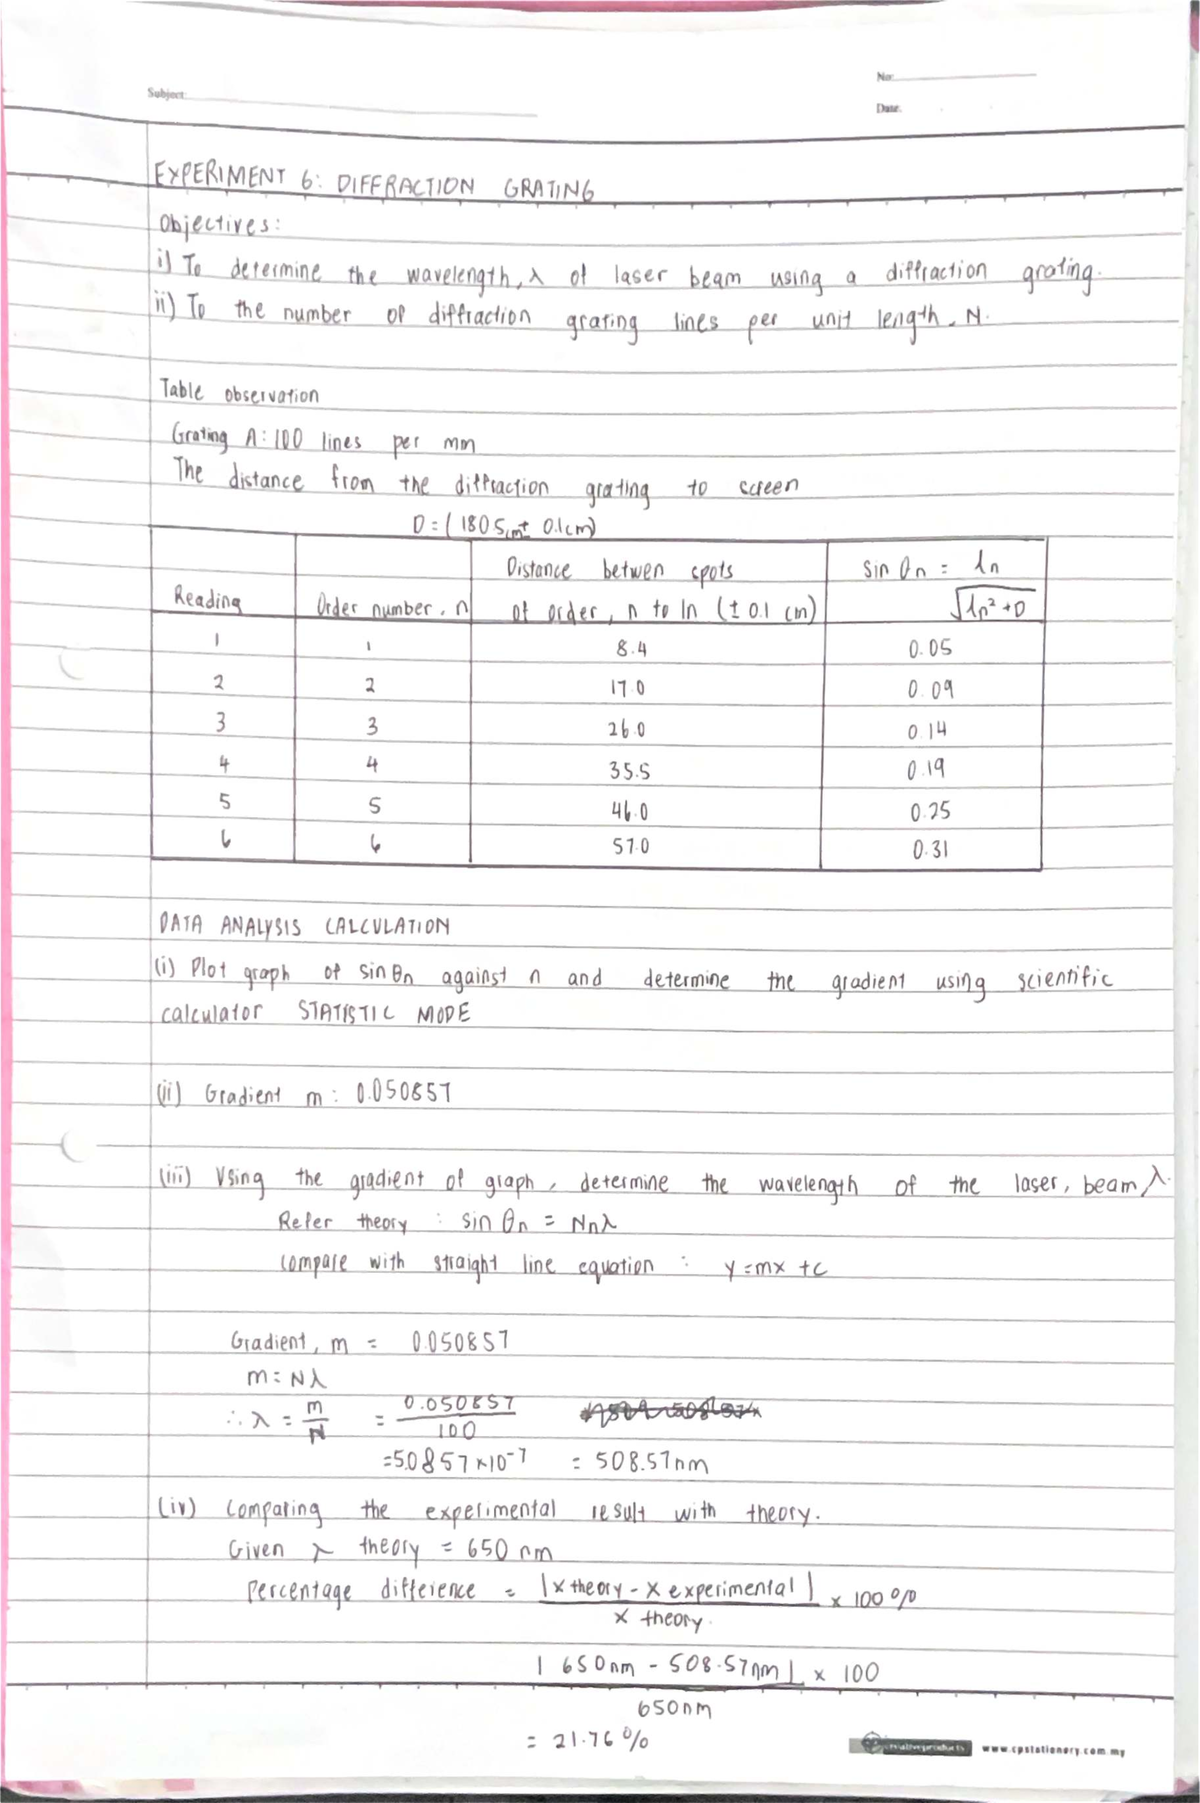 No:
Subject:
Date.
EXPERIMENT 6: DIFFRACTION GRATING
Objectives:
i) To determine the wavelength, λ of laser beam using a diffraction grating.
ii) To the number of diffraction grating lines per unit length, N.
Table observation
Grating A: 100 lines per mm
The distance from the diffraction grating to screen
D = ( 180 5cm ± 0.1cm)
Reading | Order number, n | Distance betwen spots of order, n to ln (± 0.1 cm) | sin θn = ln / √ln² + D
1 | 1 | 8.4 | 0.05
2 | 2 | 17.0 | 0.09
3 | 3 | 26.0 | 0.14
4 | 4 | 35.5 | 0.19
5 | 5 | 46.0 | 0.25
6 | 6 | 57.0 | 0.31
DATA ANALYSIS CALCULATION
(i) Plot graph of sin θn against n and determine the gradient using scientific
calculator STATISTIC MODE
(ii) Gradient m : 0.050857
(iii) Using the gradient of graph, determine the wavelength of the laser, beam λ.
Refer theory : sin θn = Nnλ
compare with straight line equation : y = mx + c
Gradient, m = 0.050857
m = Nλ
∴ λ = m/N = 0.050857/100
= 5.0857 × 10⁻⁷ = 508.57nm
(iv) Comparing the experimental result with theory.
Given λ theory = 650 nm
Percentage difference = |x theory - x experimental| / x theory. × 100 %
| 650nm - 508.57nm | / 650nm × 100
= 21.76 %
www.cpstationery.com.my